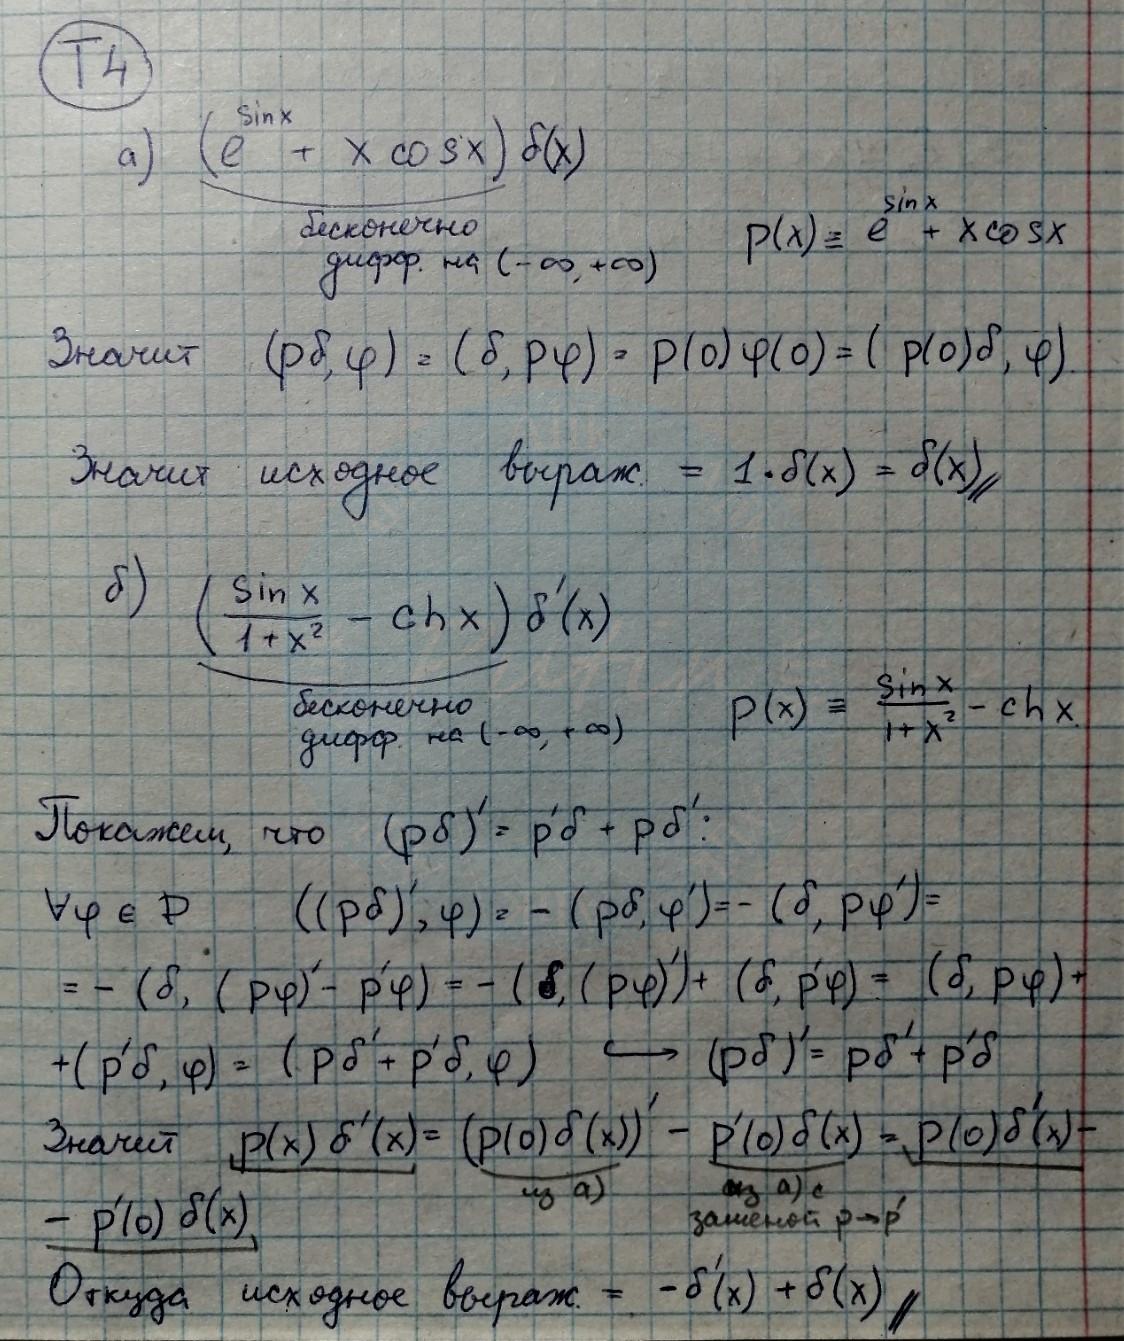 T4
а) (e^{sin x} + x cos x) δ(x)
бесконечно
дифф. на (-∞, +∞)
p(x) ≡ e^{sin x} + x cos x
Значит (pδ, φ) = (δ, pφ) = p(0)φ(0) = (p(0)δ, φ).
Значит исходное выраж. = 1·δ(x) = δ(x)//
б) (sin x / (1+x²) - ch x) δ'(x)
бесконечно
дифф. на (-∞, +∞)
p(x) ≡ sin x / (1+x²) - ch x.
Покажем, что (pδ)' = p'δ + pδ':
∀φ ∈ D ((pδ)', φ) = - (pδ, φ') = - (δ, pφ') =
= - (δ, (pφ)' - p'φ) = - (δ, (pφ)') + (δ, p'φ) = (δ, pφ) +
+ (p'δ, φ) = (pδ' + p'δ, φ) ↪ (pδ)' = pδ' + p'δ
Значит p(x) δ'(x) = (p(0)δ(x))' - p'(0)δ(x) = p(0)δ'(x) -
из а) из а) с
заменой p→p'
- p'(0) δ(x)
Откуда исходное выраж. = -δ'(x) + δ(x)//